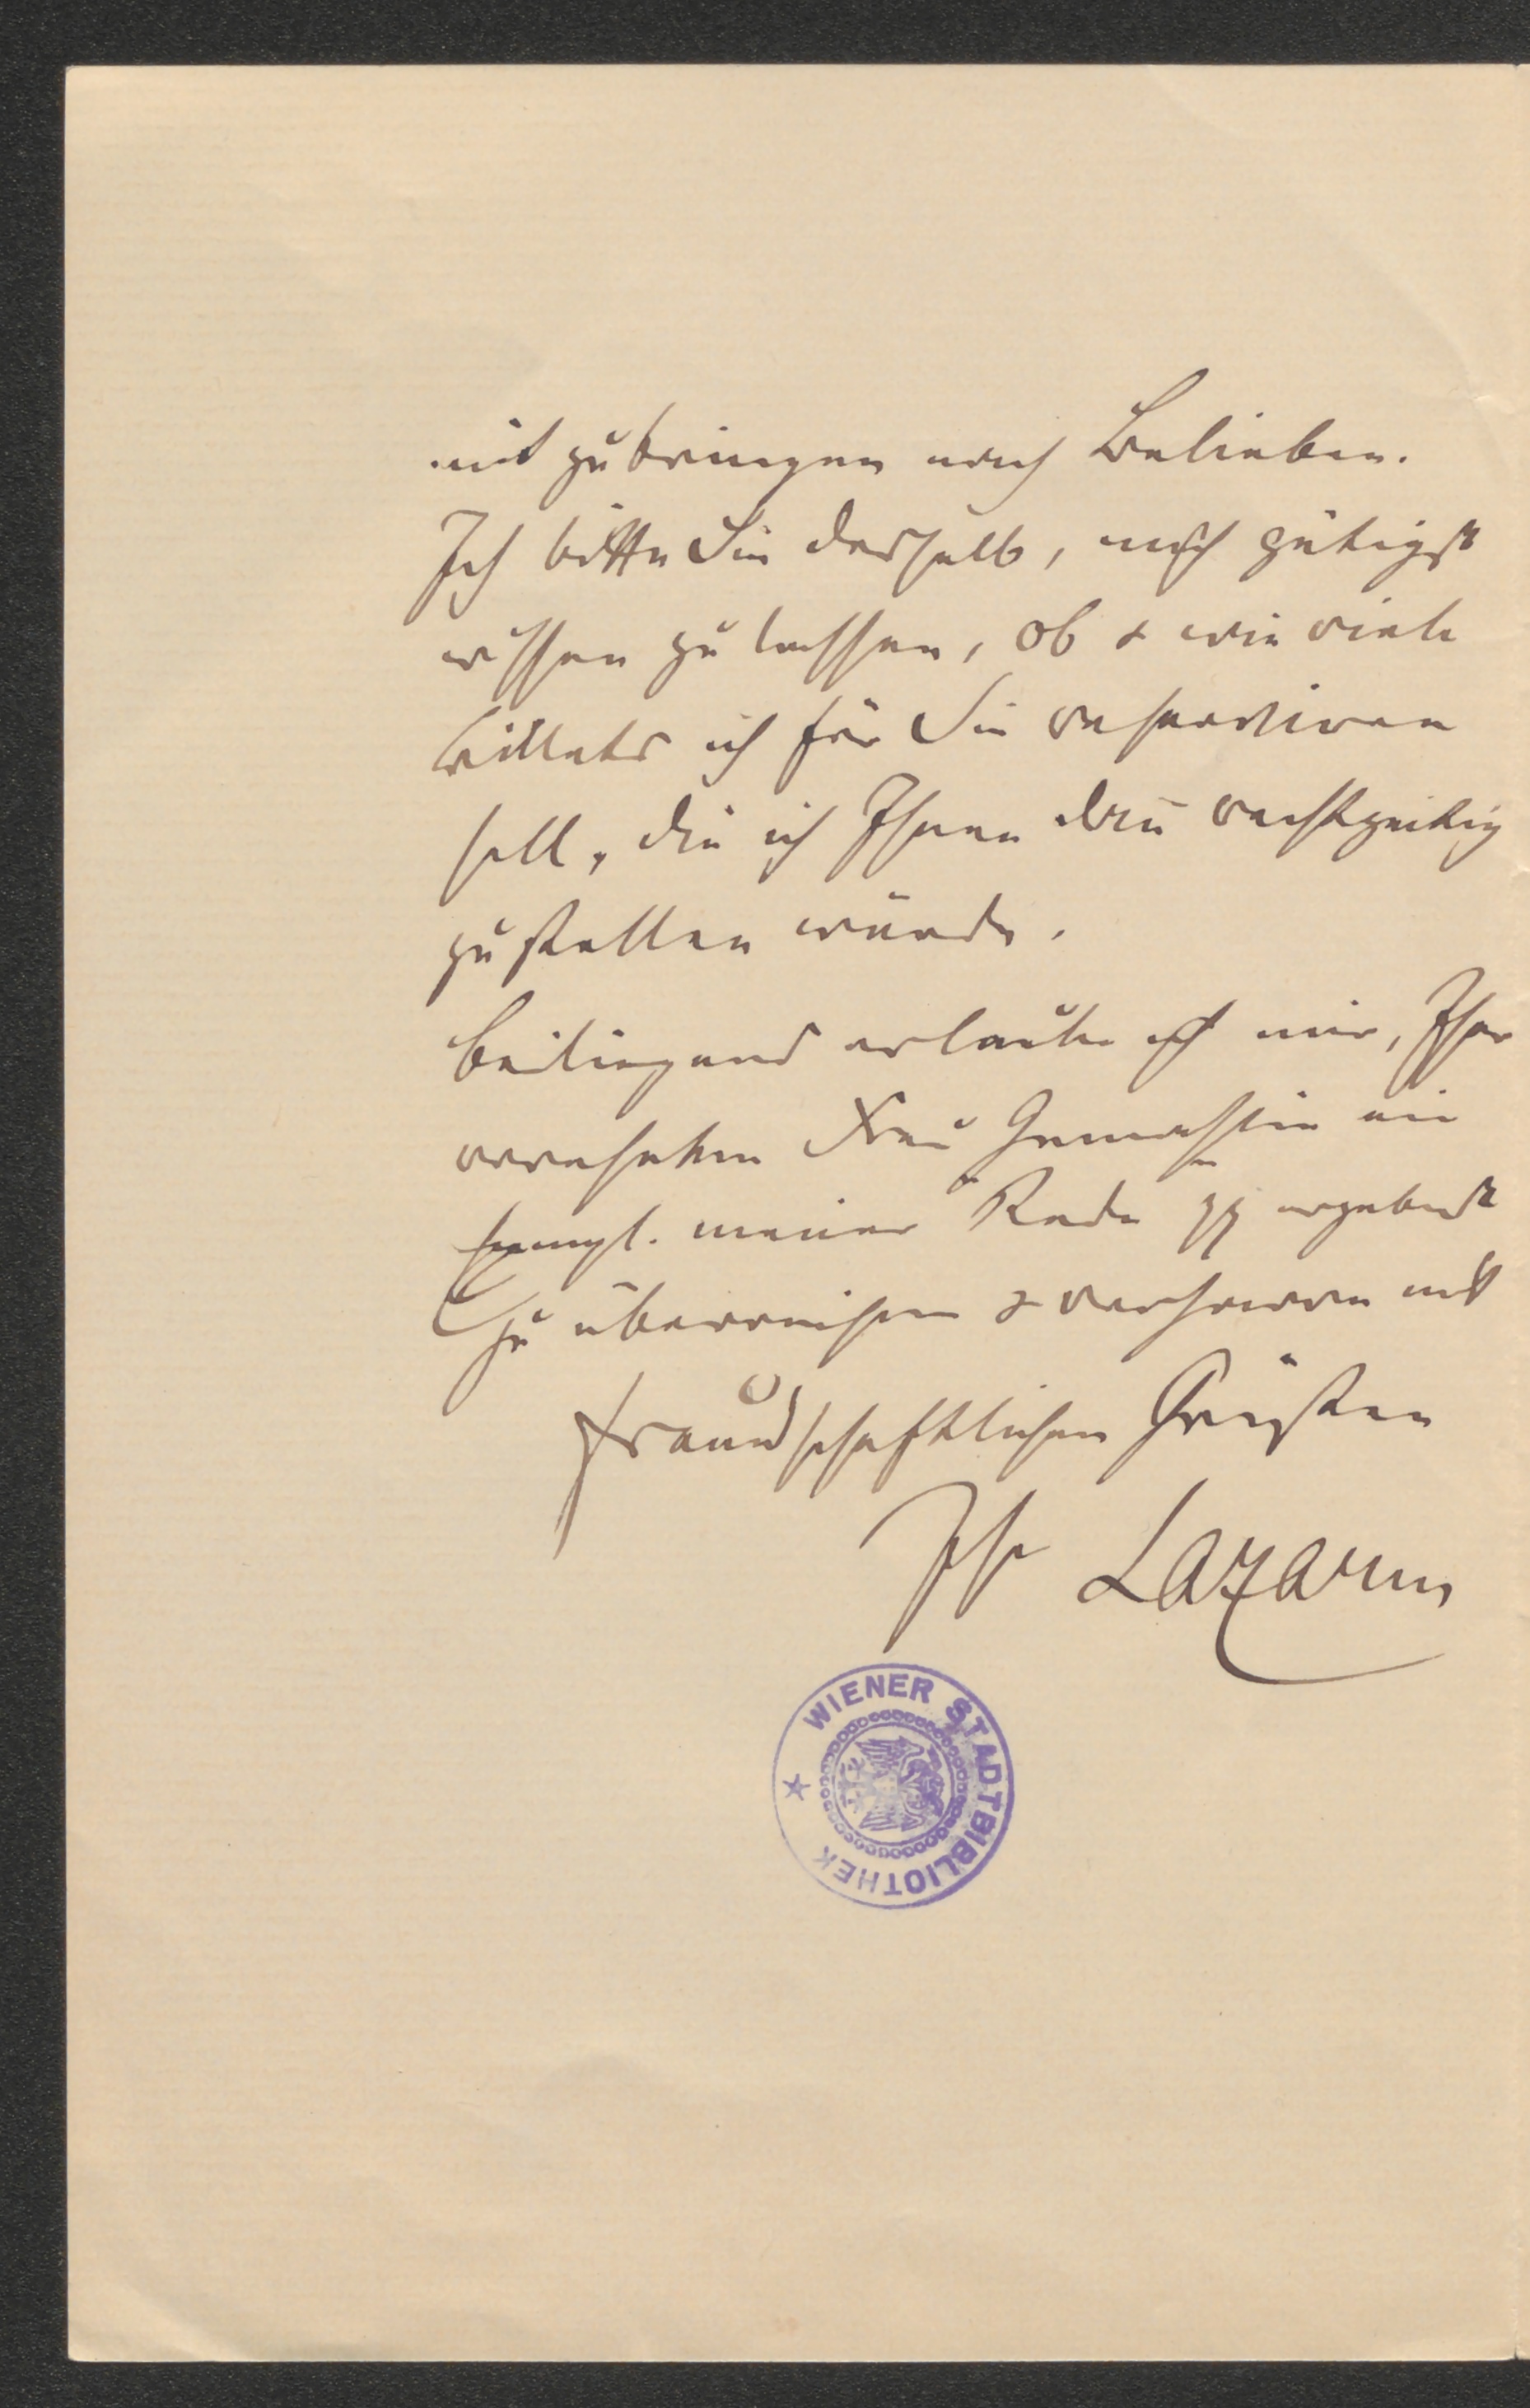 mit zu bringen nach Belieben.
Ich bitte Sie deshalb, mich gütigst
wissen zu lassen, ob & wie viele
Billets ich für Sie reserviren
soll, die ich Ihnen dann rechtzeitig
zustellen würde.
Beiliegend erlaube ich mir, Ihrer
verehrten Frau Gemahlin ein
Exempl. meiner Rede ergebenst
zu überreichen & verharre mit
freundschaftlichen Grüßen
Ihr Lazarus
WIENER STADTBIBLIOTHEK